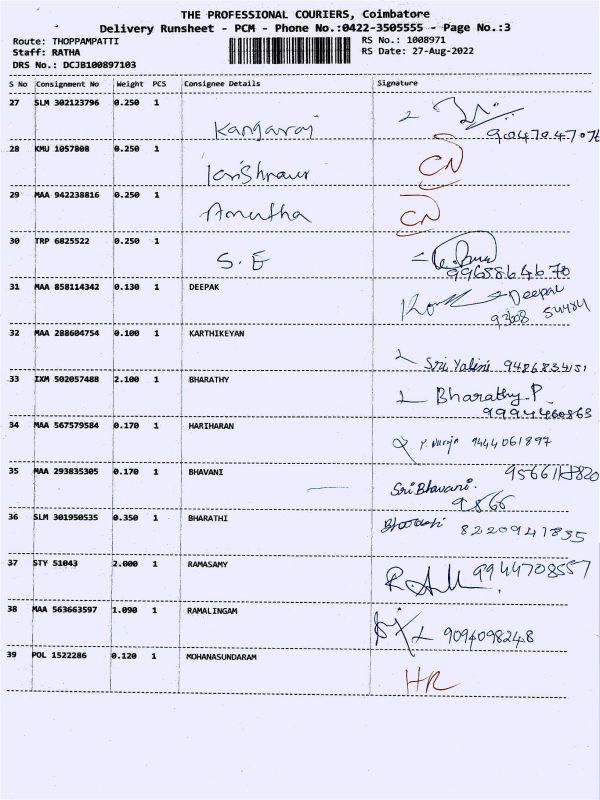 THE PROFESSIONAL COURIERS, Coimbatore
Delivery Runsheet - PCM - Phone No.:0422-3505555 - Page No.:3
Route: THOPPAMPATTI RS No.: 1008971
Staff: RATHA RS Date: 27-Aug-2022
DRS No.: DCJB100897103
S No Consignment No Weight PCS Consignee Details Signature
27 SLM 302123796 0.250 1
Kangaraj
28 KMU 1057808 0.250 1
CN
29 MAA 942238816 0.250 1
Amutha CN
30 TRP 6825522 0.250 1
S. E
9965864670
31 MAA 858114342 0.130 1 DEEPAK
Deepak
32 MAA 288604754 0.100 1 KARTHIKEYAN
Sri Yalini 9486834151
33 IXM 502057488 2.100 1 BHARATHY
Bharathy.P
9994460863
34 MAA 567579584 0.170 1 HARIHARAN
9444061897
35 MAA 293835305 0.170 1 BHAVANI
Sri Bhavani.
9566
36 SLM 301950535 0.350 1 BHARATHI
Bharathi 8220947835
37 STY 51043 2.000 1 RAMASAMY
9944708557
38 MAA 563663597 1.090 1 RAMALINGAM
9094098248
39 POL 1522286 0.120 1 MOHANASUNDARAM
HR